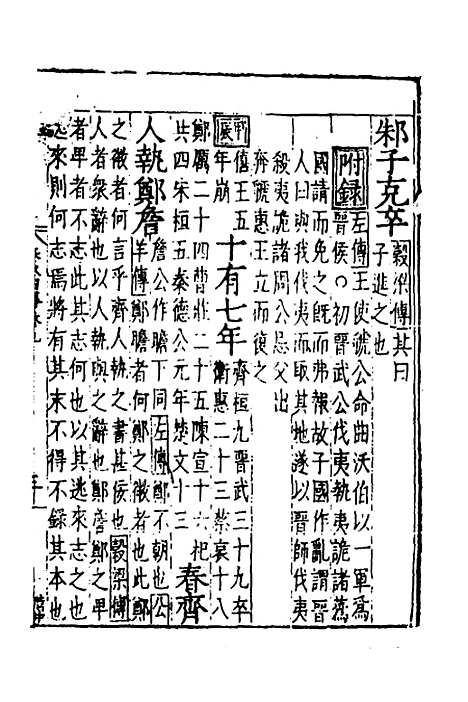 邾子克卒 穀梁傳其曰
子進之也
附錄 左傳王使虢公命曲沃伯以一軍爲
晉侯○初晉武公伐夷執夷詭諸蒍
國請而免之既而弗報故子國作亂謂晉
人曰與我伐夷而取其地遂以晉師伐夷
殺夷詭諸周公忌父出
奔虢惠王立而復之
甲辰 僖王五
年崩 十有七年 齊桓九晉武三十九卒
衛惠二十三蔡哀十八
鄭厲二十四曹莊二十五陳宣十六杞
共四宋桓五秦德公元年楚文十三 春齊
人執鄭詹 詹公作瞻下同左傳鄭不朝也公
羊傳鄭瞻者何鄭之微者也此鄭
之微者何言乎齊人執之書甚佞也穀梁傳
人者衆辭也以人執與之辭也鄭詹鄭之卑
者卑者不志此其志何也以其逃來志之也
逃來則何志焉將有其末不得不錄其本也